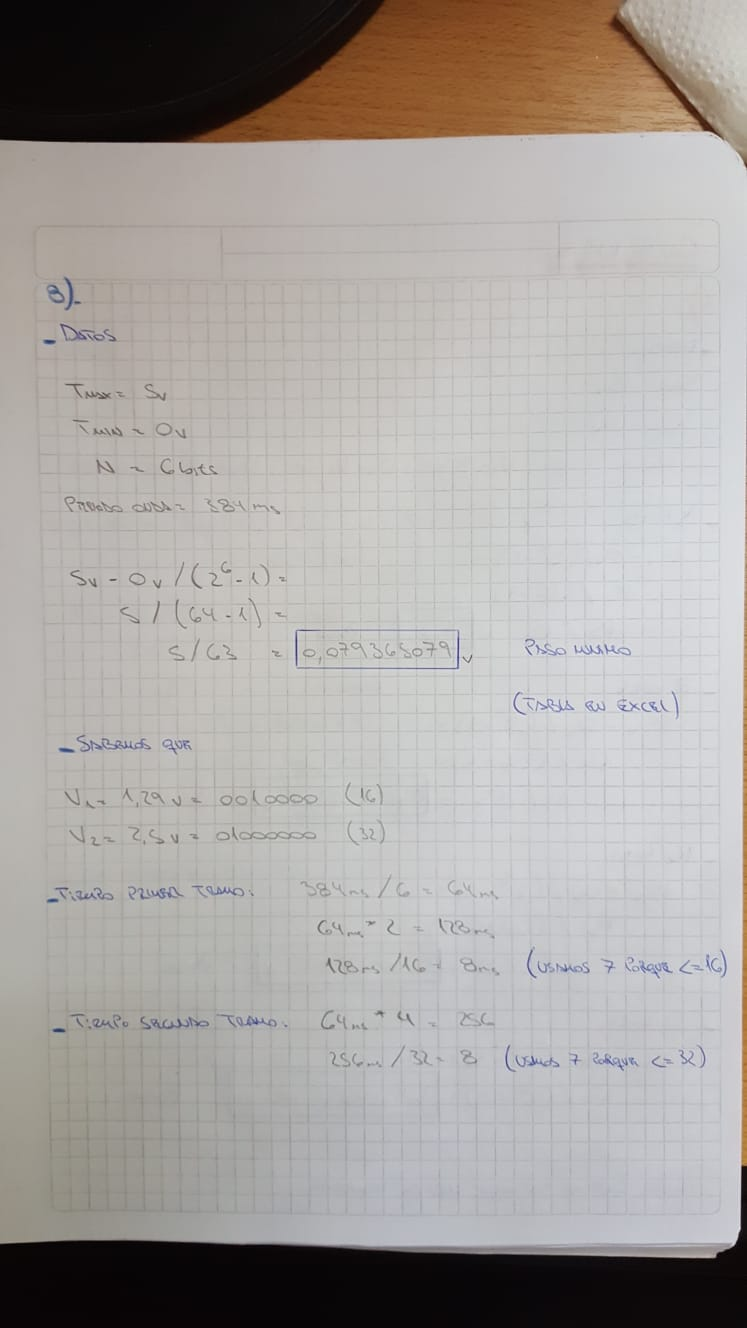 3).
- DATOS
TMAX = 5V
TMIN = 0V
N = 6 bits
PERIODO ONDA = 384 ms
5V - 0V / (2^6 - 1) =
5 / (64 - 1) =
5 / 63 = 0,079365079 V PASO MINIMO
(TABLA EN EXCEL)
- SABEMOS QUE
V1 = 1,29 V = 0010000 (16)
V2 = 2,5 V = 0100000 (32)
- TIEMPO PRIMER TRAMO: 384 ms / 6 = 64 ms
64 ms * 2 = 128 ms
128 ms / 16 = 8 ms (USAMOS 7 PORQUE <= 16)
- TIEMPO SEGUNDO TRAMO: 64 ms * 4 = 256
256 ms / 32 = 8 (USAMOS 7 PORQUE <= 32)